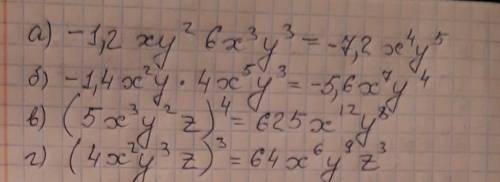 а) -1,2 xy² 6x³y³ = -7,2 x⁴y⁵
б) -1,4x²y · 4x⁵y³ = -5,6x⁷y⁴
в) (5x³y²z)⁴ = 625x¹²y⁸
г) (4x²y³z)³ = 64x⁶y⁹z³